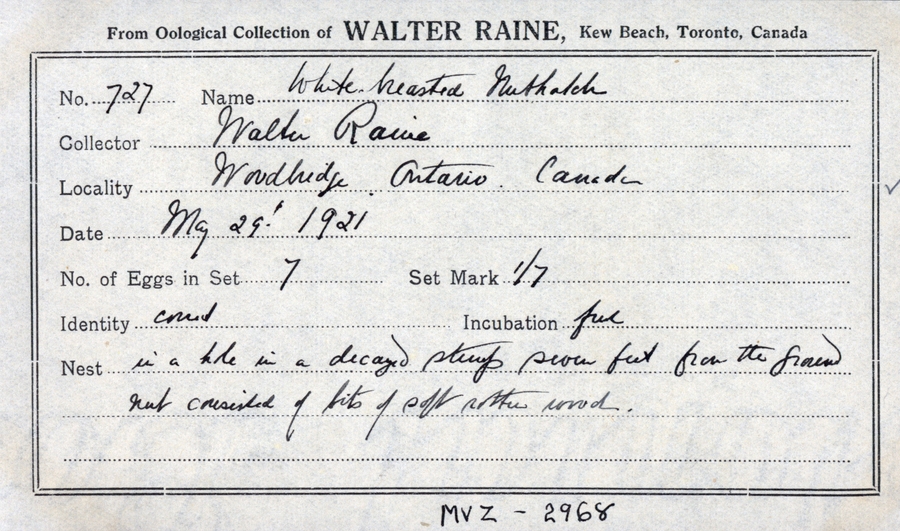 From Oological Collection of WALTER RAINE, Kew Beach, Toronto, Canada
No. 727 Name White-breasted Nuthatch
Collector Walter Raine
Locality Woodbridge. Ontario. Canada
Date May 29' 1921
No. of Eggs in Set 7 Set Mark 1/7
Identity Incubation
Nest in a hole in a decayed stump seven feet from the ground
nest consisted of bits of soft rotten wood.
MVZ - 2968